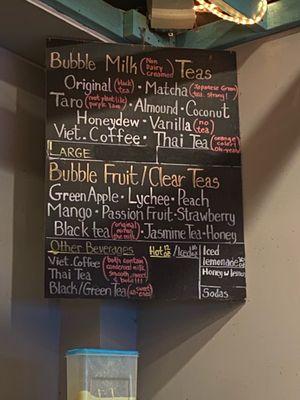 Bubble Milk (Non Dairy Creamed) Teas
Original (black tea) • Matcha (Japanese Green tea. strong!)
Taro (root plant like purple yam) • Almound • Coconut
Honeydew • Vanilla (no tea)
Viet. Coffee • Thai Tea (orange color! oh-yeah)
LARGE
Bubble Fruit/Clear Teas
Green Apple • Lychee • Peach
Mango • Passion Fruit • Strawberry
Black tea (original minus the milk) • Jasmine Tea • Honey
Other Beverages Hot /Iced
Viet. Coffee (both contain condensed milk, smooth, sweet & bold!!!)
Thai Tea
Black/Green Tea
Iced
lemonade
Honey w/lemon
Sodas